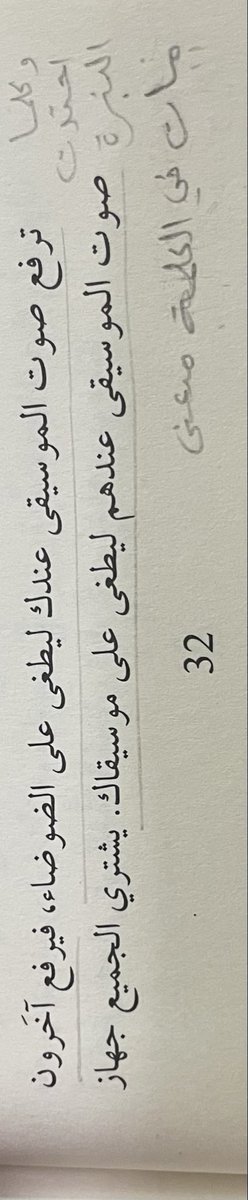 ترفع صوت الموسيقى عندك ليطغى على الضوضاء، فيرفع آخَرون
صوت الموسيقى عندهم ليطغى على موسيقاك. يشتري الجميع جهاز
وكلما
احتدت
النبرة
في الكلمة معنى
32